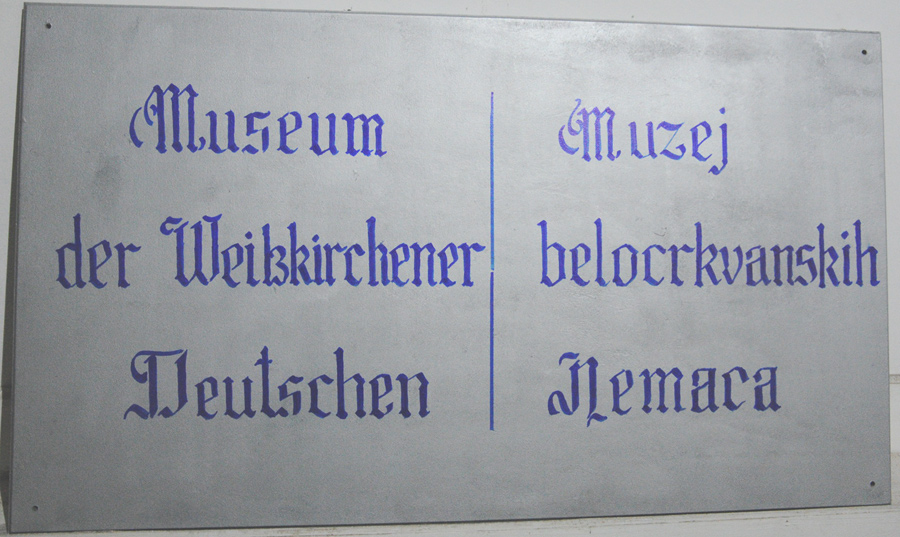 Museum
der Weißkirchener
Deutschen
Muzej
belocrkvanskih
Nemaca